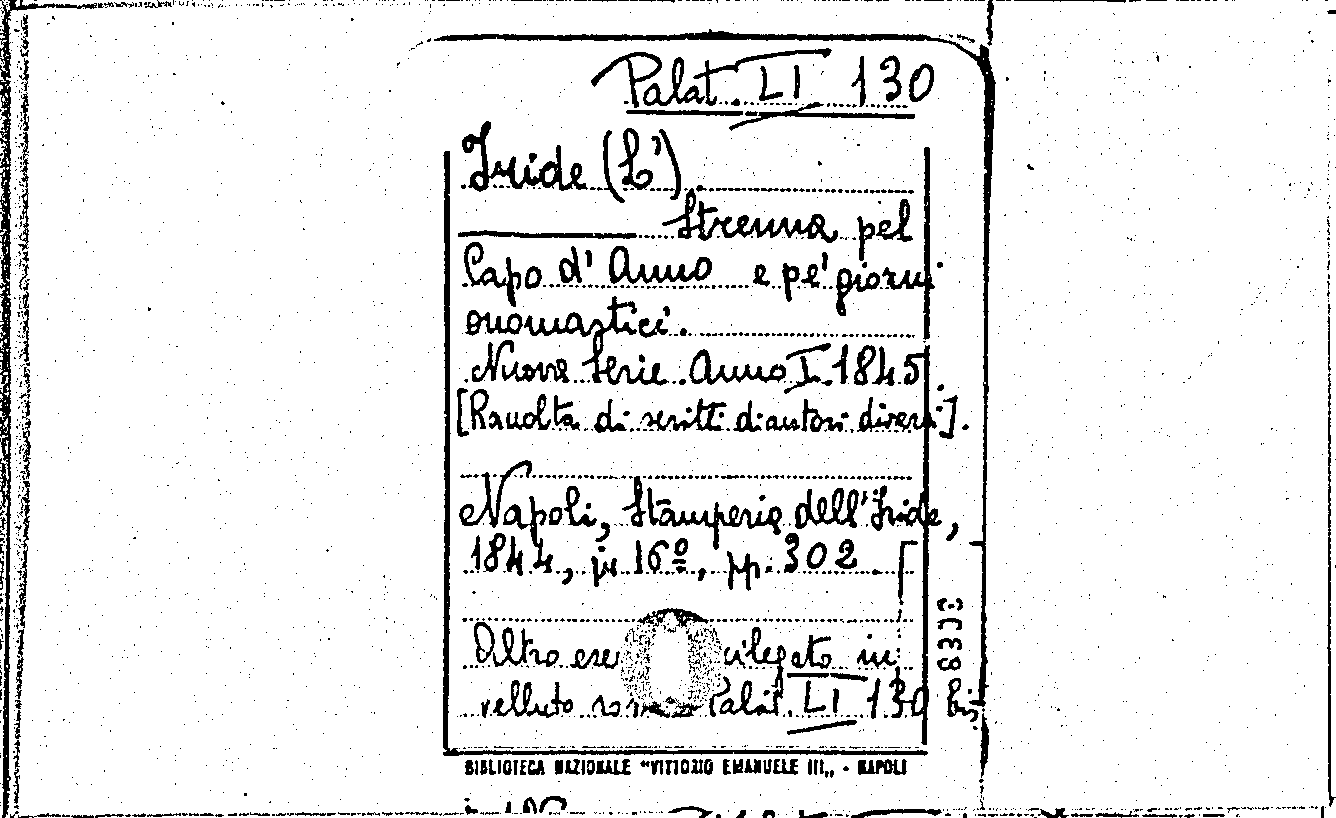 Palat. LI 130
Iride (L')
Strenna pel
Capo d' Anno e pe' giorni
onomastici.
Nuova Serie. Anno I. 1845.
[Raccolta di scritti di autori diversi].
Napoli, Stamperia dell'Iride,
1844, in 16º, pp. 302.
Altro rilegato in
velluto Palat. LI 130 bis
BIBLIOTECA NAZIONALE "VITTORIO EMANUELE III„ - NAPOLI